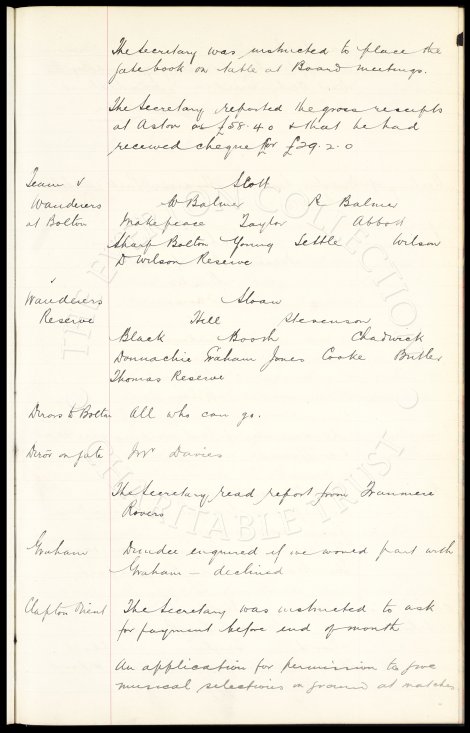 The Secretary was instructed to place the
gate book on table at Board meetings.
The Secretary reported the gross receipts
at Aston as £58.4.0 & that he had
received cheque for £29.2.0
Team v Scott
Wanderers W Balmer R Balmer
at Bolton Makepeace Taylor Abbott
Sharp Bolton Young Settle Wilson
D Wilson Reserve
v
Wanderers Sloan
Reserve Hill Stevenson
Black Booth Chadwick
Donnachie Graham Jones Cooke Butler
Thomas Reserve
Dirors to Bolton All who can go.
Diror on gate Mr Davies
The Secretary read report from Tranmere
Rovers
Graham Dundee enquired if we would part with
Graham — declined
Clapton Orient The Secretary was instructed to ask
for payment before end of month
An application for permission to give
musical selections on ground at matches
THE EVERTON COLLECTION
CHARITABLE TRUST